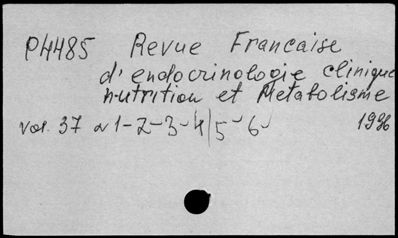 P4485 Revue Francaise
d'endocrinologie clinique
nutrition et Metabolisme
vol. 37 N 1-2-3-4/5-6 1996